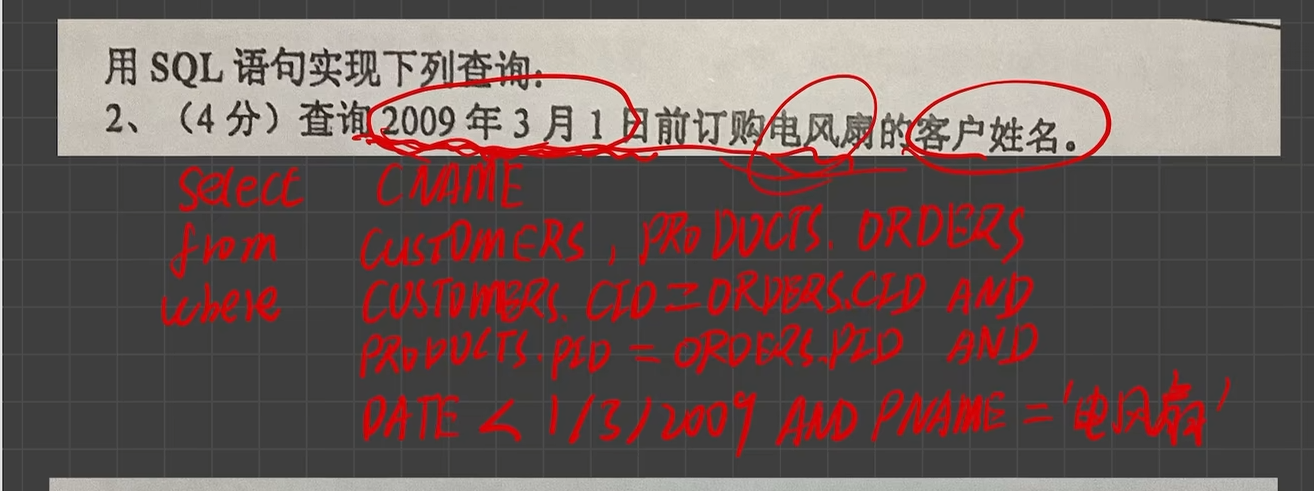 用 SQL 语句实现下列查询:
2、（4 分）查询 2009 年 3 月 1 日前订购电风扇的客户姓名。
Select CNAME
from CUSTOMERS, PRODUCTS. ORDERS
where CUSTOMERS.CID=ORDERS.CID AND
PRODUCTS.PID = ORDERS.PID AND
DATE < 1/3/2009 AND PNAME = '电风扇'